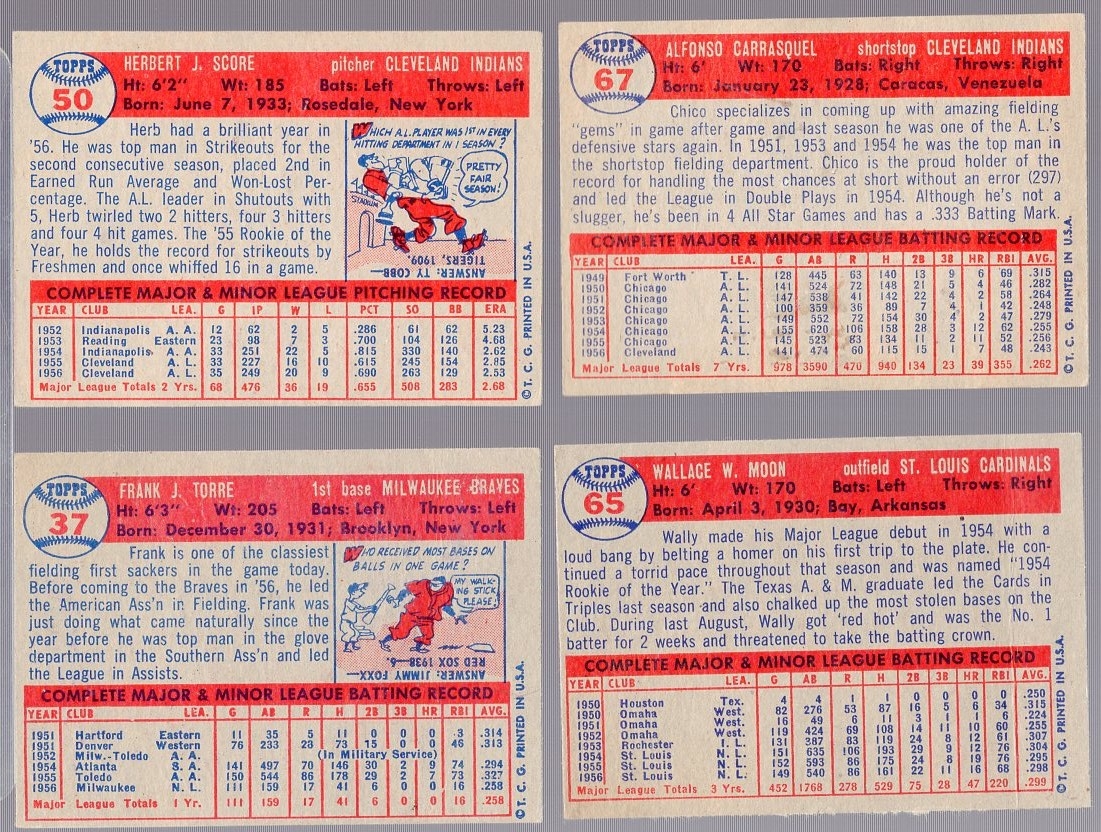 TOPPS
50
HERBERT J. SCORE pitcher CLEVELAND INDIANS
Ht: 6'2" Wt: 185 Bats: Left Throws: Left
Born: June 7, 1933; Rosedale, New York
Herb had a brilliant year in
'56. He was top man in Strikeouts for the
second consecutive season, placed 2nd in
Earned Run Average and Won-Lost Per-
centage. The A.L. leader in Shutouts with
5, Herb twirled two 2 hitters, four 3 hitters
and four 4 hit games. The '55 Rookie of the
Year, he holds the record for strikeouts by
Freshmen and once whiffed 16 in a game.
WHICH A.L. PLAYER WAS 1ST IN EVERY
HITTING DEPARTMENT IN 1 SEASON?
PRETTY
FAIR
SEASON!
STADIUM
ANSWER: TY COBB—
TIGERS, 1909.
COMPLETE MAJOR & MINOR LEAGUE PITCHING RECORD
YEAR CLUB LEA. G IP W L PCT SO BB ERA
1952 Indianapolis A. A. 12 62 2 5 .286 61 62 5.23
1953 Reading Eastern 23 98 7 3 .700 104 126 4.68
1954 Indianapolis A. A. 33 251 22 5 .815 330 140 2.62
1955 Cleveland A. L. 33 227 16 10 .615 245 154 2.85
1956 Cleveland A. L. 35 249 20 9 .690 263 129 2.53
Major League Totals 2 Yrs. 68 476 36 19 .655 508 283 2.68
© T. C. G. PRINTED IN U.S.A.
TOPPS
67
ALFONSO CARRASQUEL shortstop CLEVELAND INDIANS
Ht: 6' Wt: 170 Bats: Right Throws: Right
Born: January 23, 1928; Caracas, Venezuela
Chico specializes in coming up with amazing fielding
"gems" in game after game and last season he was one of the A. L.'s
defensive stars again. In 1951, 1953 and 1954 he was the top man in
the shortstop fielding department. Chico is the proud holder of the
record for handling the most chances at short without an error (297)
and led the League in Double Plays in 1954. Although he's not a
slugger, he's been in 4 All Star Games and has a .333 Batting Mark.
COMPLETE MAJOR & MINOR LEAGUE BATTING RECORD
YEAR CLUB LEA. G AB R H 2B 3B HR RBI AVG.
1949 Fort Worth T. L. 128 445 63 140 13 9 6 69 .315
1950 Chicago A. L. 141 524 72 148 21 5 4 46 .282
1951 Chicago A. L. 147 538 41 142 22 4 2 58 .264
1952 Chicago A. L. 100 359 36 89 7 4 1 42 .248
1953 Chicago A. L. 149 552 72 154 30 4 2 47 .279
1954 Chicago A. L. 155 620 106 158 28 3 12 62 .255
1955 Chicago A. L. 145 523 83 134 11 2 11 52 .256
1956 Cleveland A. L. 141 474 60 115 15 1 7 48 .243
Major League Totals 7 Yrs. 978 3590 470 940 134 23 39 355 .262
© T. C. G. PRINTED IN U.S.A.
TOPPS
37
FRANK J. TORRE 1st base MILWAUKEE BRAVES
Ht: 6'3" Wt: 205 Bats: Left Throws: Left
Born: December 30, 1931; Brooklyn, New York
Frank is one of the classiest
fielding first sackers in the game today.
Before coming to the Braves in '56, he led
the American Ass'n in Fielding. Frank was
just doing what came naturally since the
year before he was top man in the glove
department in the Southern Ass'n and led
the League in Assists.
WHO RECEIVED MOST BASES ON
BALLS IN ONE GAME?
MY WALK-
ING STICK,
PLEASE!
ANSWER: JIMMY FOXX—
RED SOX 1938—6.
COMPLETE MAJOR & MINOR LEAGUE BATTING RECORD
YEAR CLUB LEA. G AB R H 2B 3B HR RBI AVG.
1951 Hartford Eastern 11 35 5 11 0 0 0 3 .314
1951 Denver Western 76 233 28 73 15 0 0 46 .313
1952 Milw.-Toledo A. A. (In Military Service)
1954 Atlanta S. A. 141 497 70 146 30 2 9 74 .294
1955 Toledo A. A. 150 544 86 178 29 2 7 73 .327
1956 Milwaukee N. L. 111 159 17 41 6 0 0 16 .258
Major League Totals 1 Yr. 111 159 17 41 6 0 0 16 .258
© T. C. G. PRINTED IN U.S.A.
TOPPS
65
WALLACE W. MOON outfield ST. LOUIS CARDINALS
Ht: 6' Wt: 170 Bats: Left Throws: Right
Born: April 3, 1930; Bay, Arkansas
Wally made his Major League debut in 1954 with a
loud bang by belting a homer on his first trip to the plate. He con-
tinued a torrid pace throughout that season and was named "1954
Rookie of the Year." The Texas A. & M. graduate led the Cards in
Triples last season and also chalked up the most stolen bases on the
Club. During last August, Wally got 'red hot' and was the No. 1
batter for 2 weeks and threatened to take the batting crown.
COMPLETE MAJOR & MINOR LEAGUE BATTING RECORD
YEAR CLUB LEA. G AB R H 2B 3B HR RBI AVG.
1950 Houston Tex. 4 4 1 1 0 0 0 0 .250
1950 Omaha West. 82 276 53 87 16 5 6 34 .315
1951 Omaha West. 16 49 6 11 3 1 1 6 .224
1952 Omaha West. 119 424 69 108 14 11 0 61 .255
1953 Rochester I. L. 131 387 83 119 24 8 12 61 .307
1954 St. Louis N. L. 151 635 106 193 29 9 12 76 .304
1955 St. Louis N. L. 152 593 86 175 24 8 19 76 .295
1956 St. Louis N. L. 149 540 86 161 22 11 16 68 .298
Major League Totals 3 Yrs. 452 1768 278 529 75 28 47 220 .299
© T. C. G. PRINTED IN U.S.A.